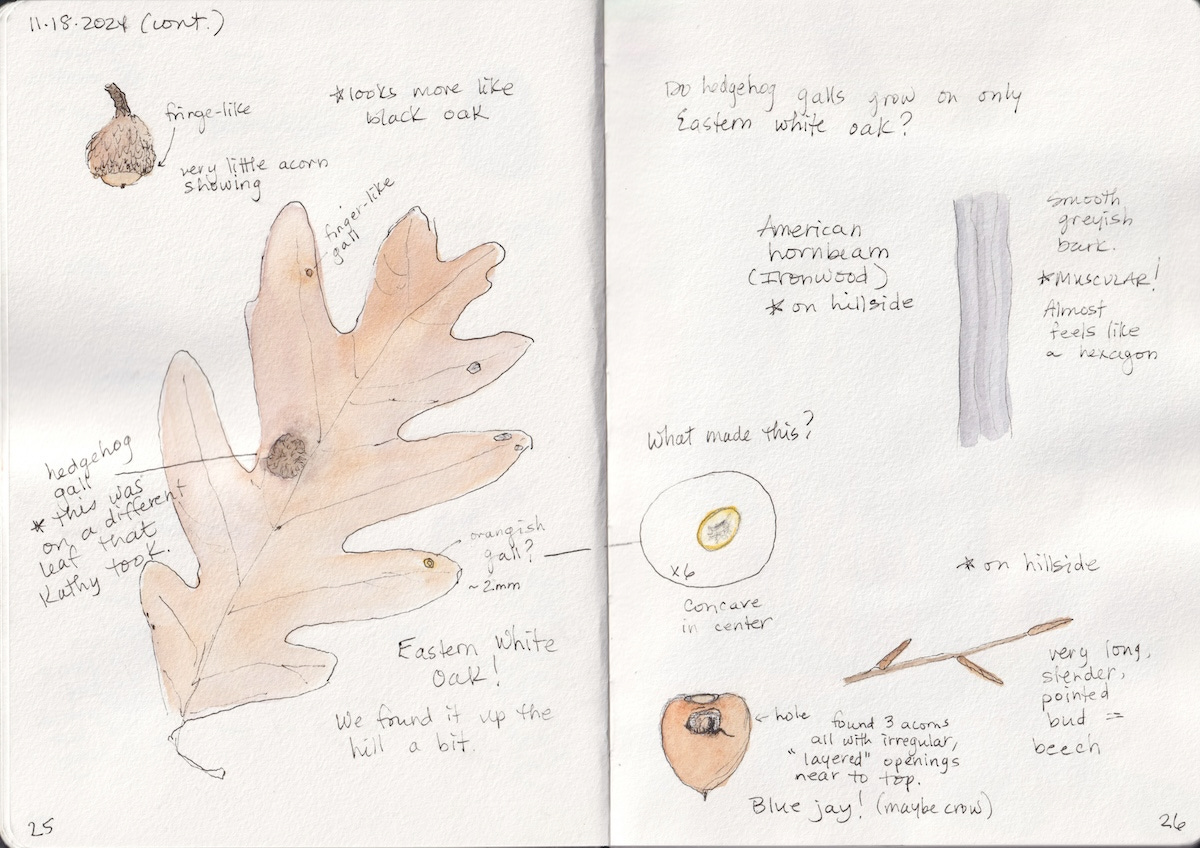 11.18.2024 (cont.)
fringe-like
very little acorn
showing
*looks more like
black oak
finger-like
gall
hedgehog
gall
* this was
on a different
leaf that
Kathy took.
orangish
gall?
~2mm
Eastern White
Oak!
We found it up the
hill a bit.
25
Do hedgehog galls grow on only
Eastern white oak?
American
hornbeam
(Ironwood)
* on hillside
smooth
greyish
bark.
*MUSCULAR!
Almost
feels like
a hexagon
What made this?
x6
Concave
in center
* on hillside
very long,
slender,
pointed
bud =
beech
← hole
found 3 acorns
all with irregular,
"layered" openings
near to top.
Blue jay! (maybe crow)
26